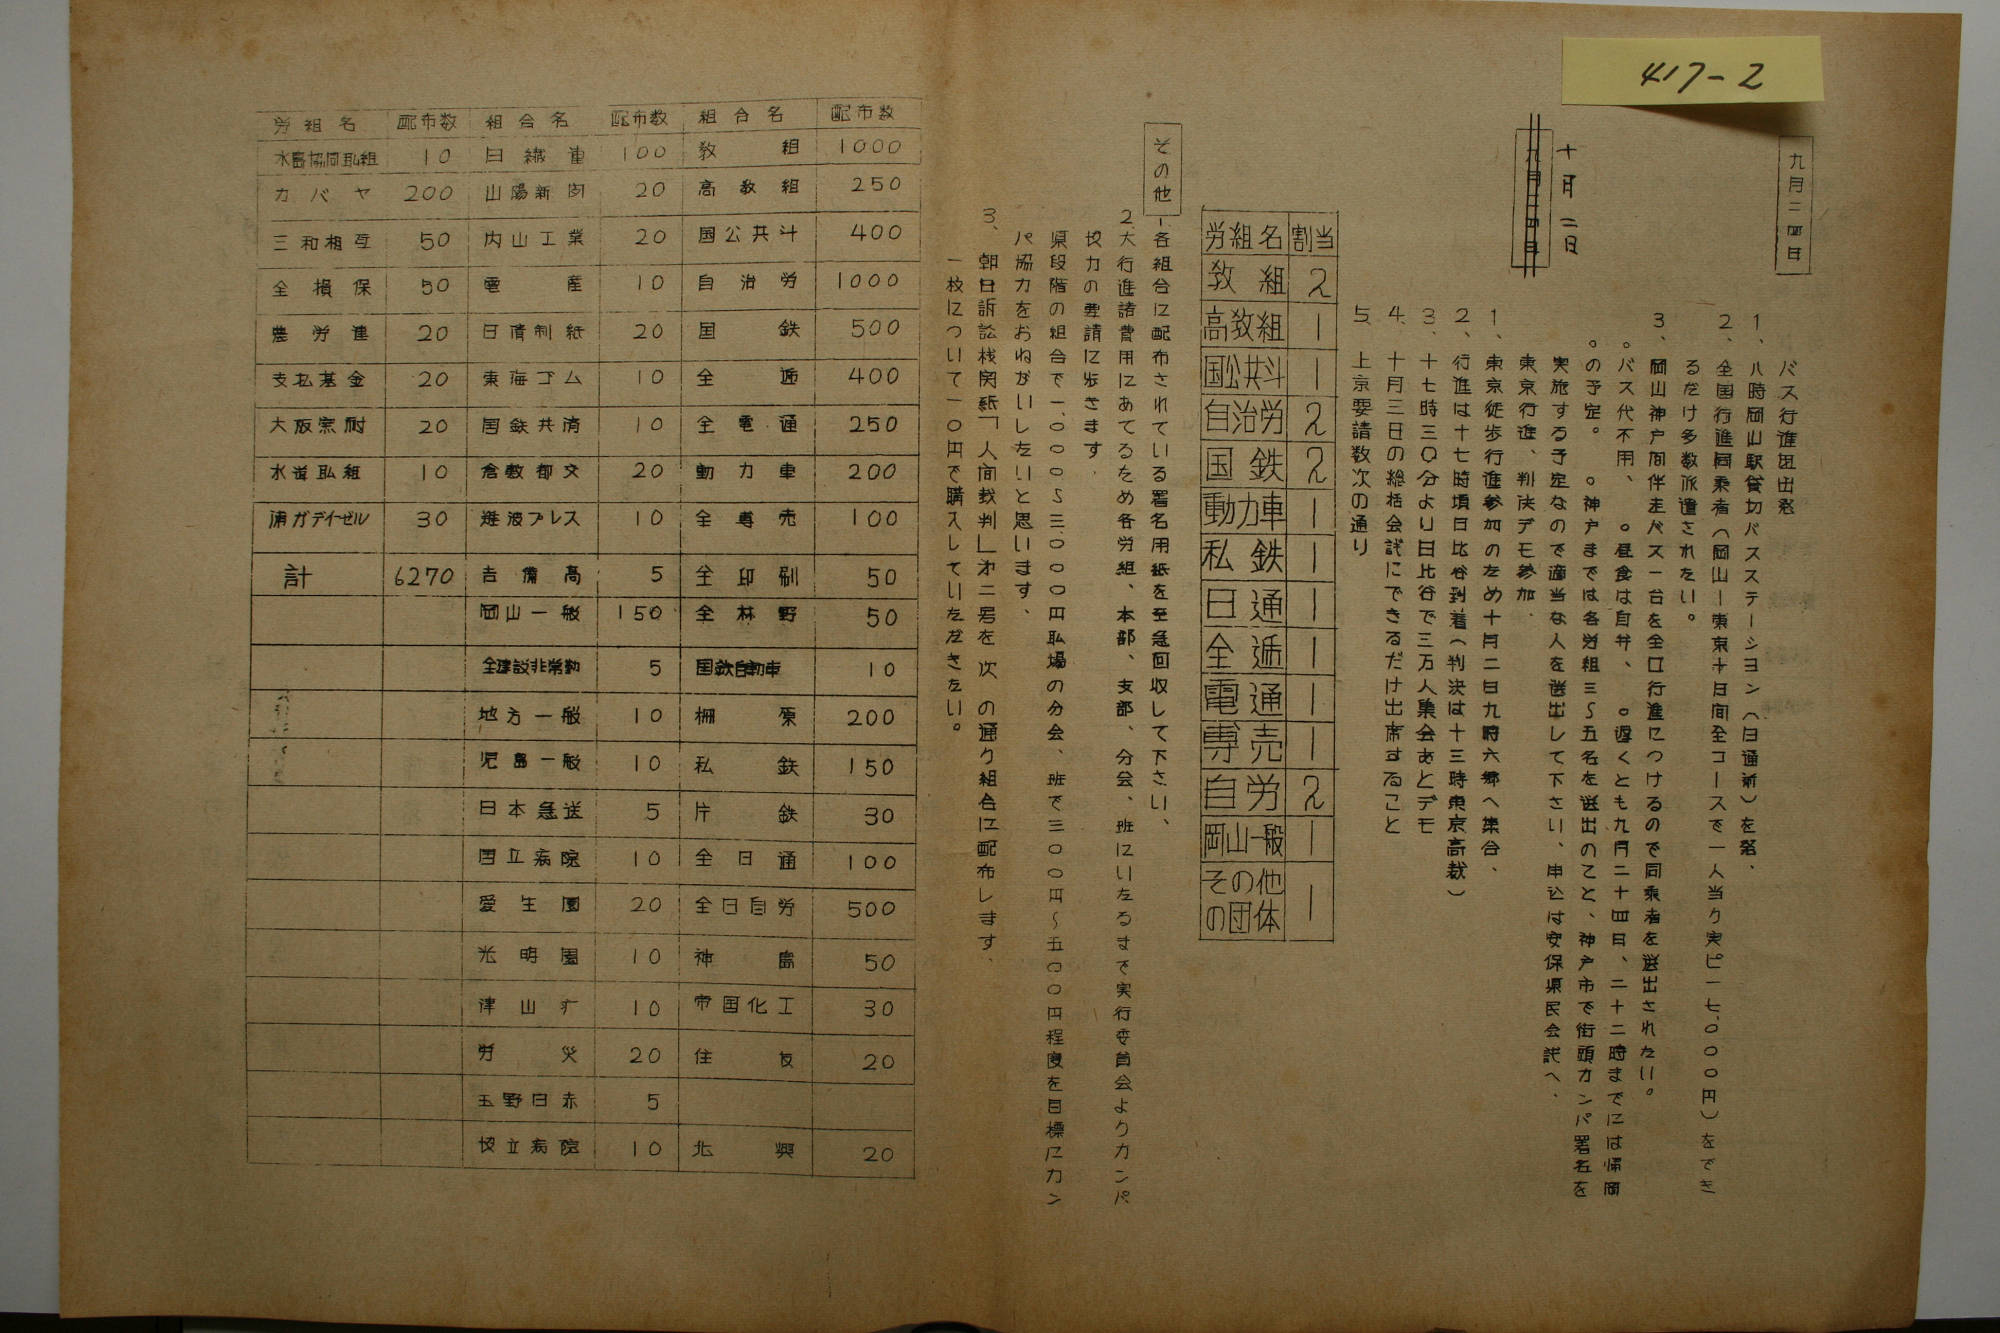 417-2
九月二四日
バス行進団出発
1、八時岡山駅貸切バスステーシヨン(日通前)を発、
2、全国行進同乗者(岡山ー東京十日间全コースで一人当り実ピ一七、〇〇〇円)をでき
るだけ多数派遣されたい。
3、岡山神戸间伴走バス一台を全口行進につけるので同乗者を選出されたい。
○バス代不用、 ○昼食は自弁、 ○遅くとも九月二十四日、二十二時までには帰岡
の予定。 ○神戸までは各労組三~五名を選出のこと、神戸市で街頭カンパ署名を
実施する予定なので適当な人を選出して下さい、申込は安保県民会議へ、
十月二日
九月二四日
東京行進、判決デモ参加、
1、東京徒歩行進参加のため十月二日九時六郷へ集合、
2、行進は十七時頃日比谷到着(判決は十三時東京高裁)
3、十七時三〇分より日比谷で三万人集会あとデモ
4、十月三日の総括会議にできるだけ出席すること
5、上京要請数次の通り
労組名 割当
教組 2
高教組 1
国公共斗 1
自治労 2
国鉄 2
動力車 1
私鉄 1
日通 1
全逓 1
電通 1
専売 1
自労 2
岡山一般 1
その他の団体 1
その他
1各組合に配布されている署名用紙を至急回収して下さい、
2大行進諸費用にあてるため各労組、本部、支部、分会、班にいたるまで実行委員会よりカンパ
校力の要請に歩きます、
県段階の組合で一、〇〇〇~三、〇〇〇円、職場の分会、班で三〇〇円~五〇〇円程度を目標にカン
パ協力をおねがいしたいと思います、
3、朝日訴訟機関紙「人间裁判」オ二号を次の通り組合に配布します、
一枚について一〇円で購入していただきたい。
労組名 配布数 組合名 配布数 組合名 配布数
水島協同私組 10 日織連 100 教組 1000
カバヤ 200 山陽新闻 20 高教組 250
三和相互 50 内山工業 20 国公共斗 400
全損保 50 電産 10 自治労 1000
農労連 20 日清制紙 20 国鉄 500
支払基金 20 東海ゴム 10 全逓 400
大阪窯耐 20 国鉄共済 10 全電通 250
水道私組 10 倉敷都交 20 動力車 200
浦ガデイーゼル 30 難波プレス 10 全専売 100
計 6270 吉備高 5 全印刷 50
岡山一般 150 全林野 50
全建設非常勤 5 国鉄自動車 10
地方一般 10 柵原 200
児島一般 10 私鉄 150
日本急送 5 片鉄 30
国立病院 10 全日通 100
愛生園 20 全日自労 500
光明園 10 神島 50
津山疗 10 帝国化工 30
労災 20 住友 20
玉野日赤 5
校立病院 10 北興 20